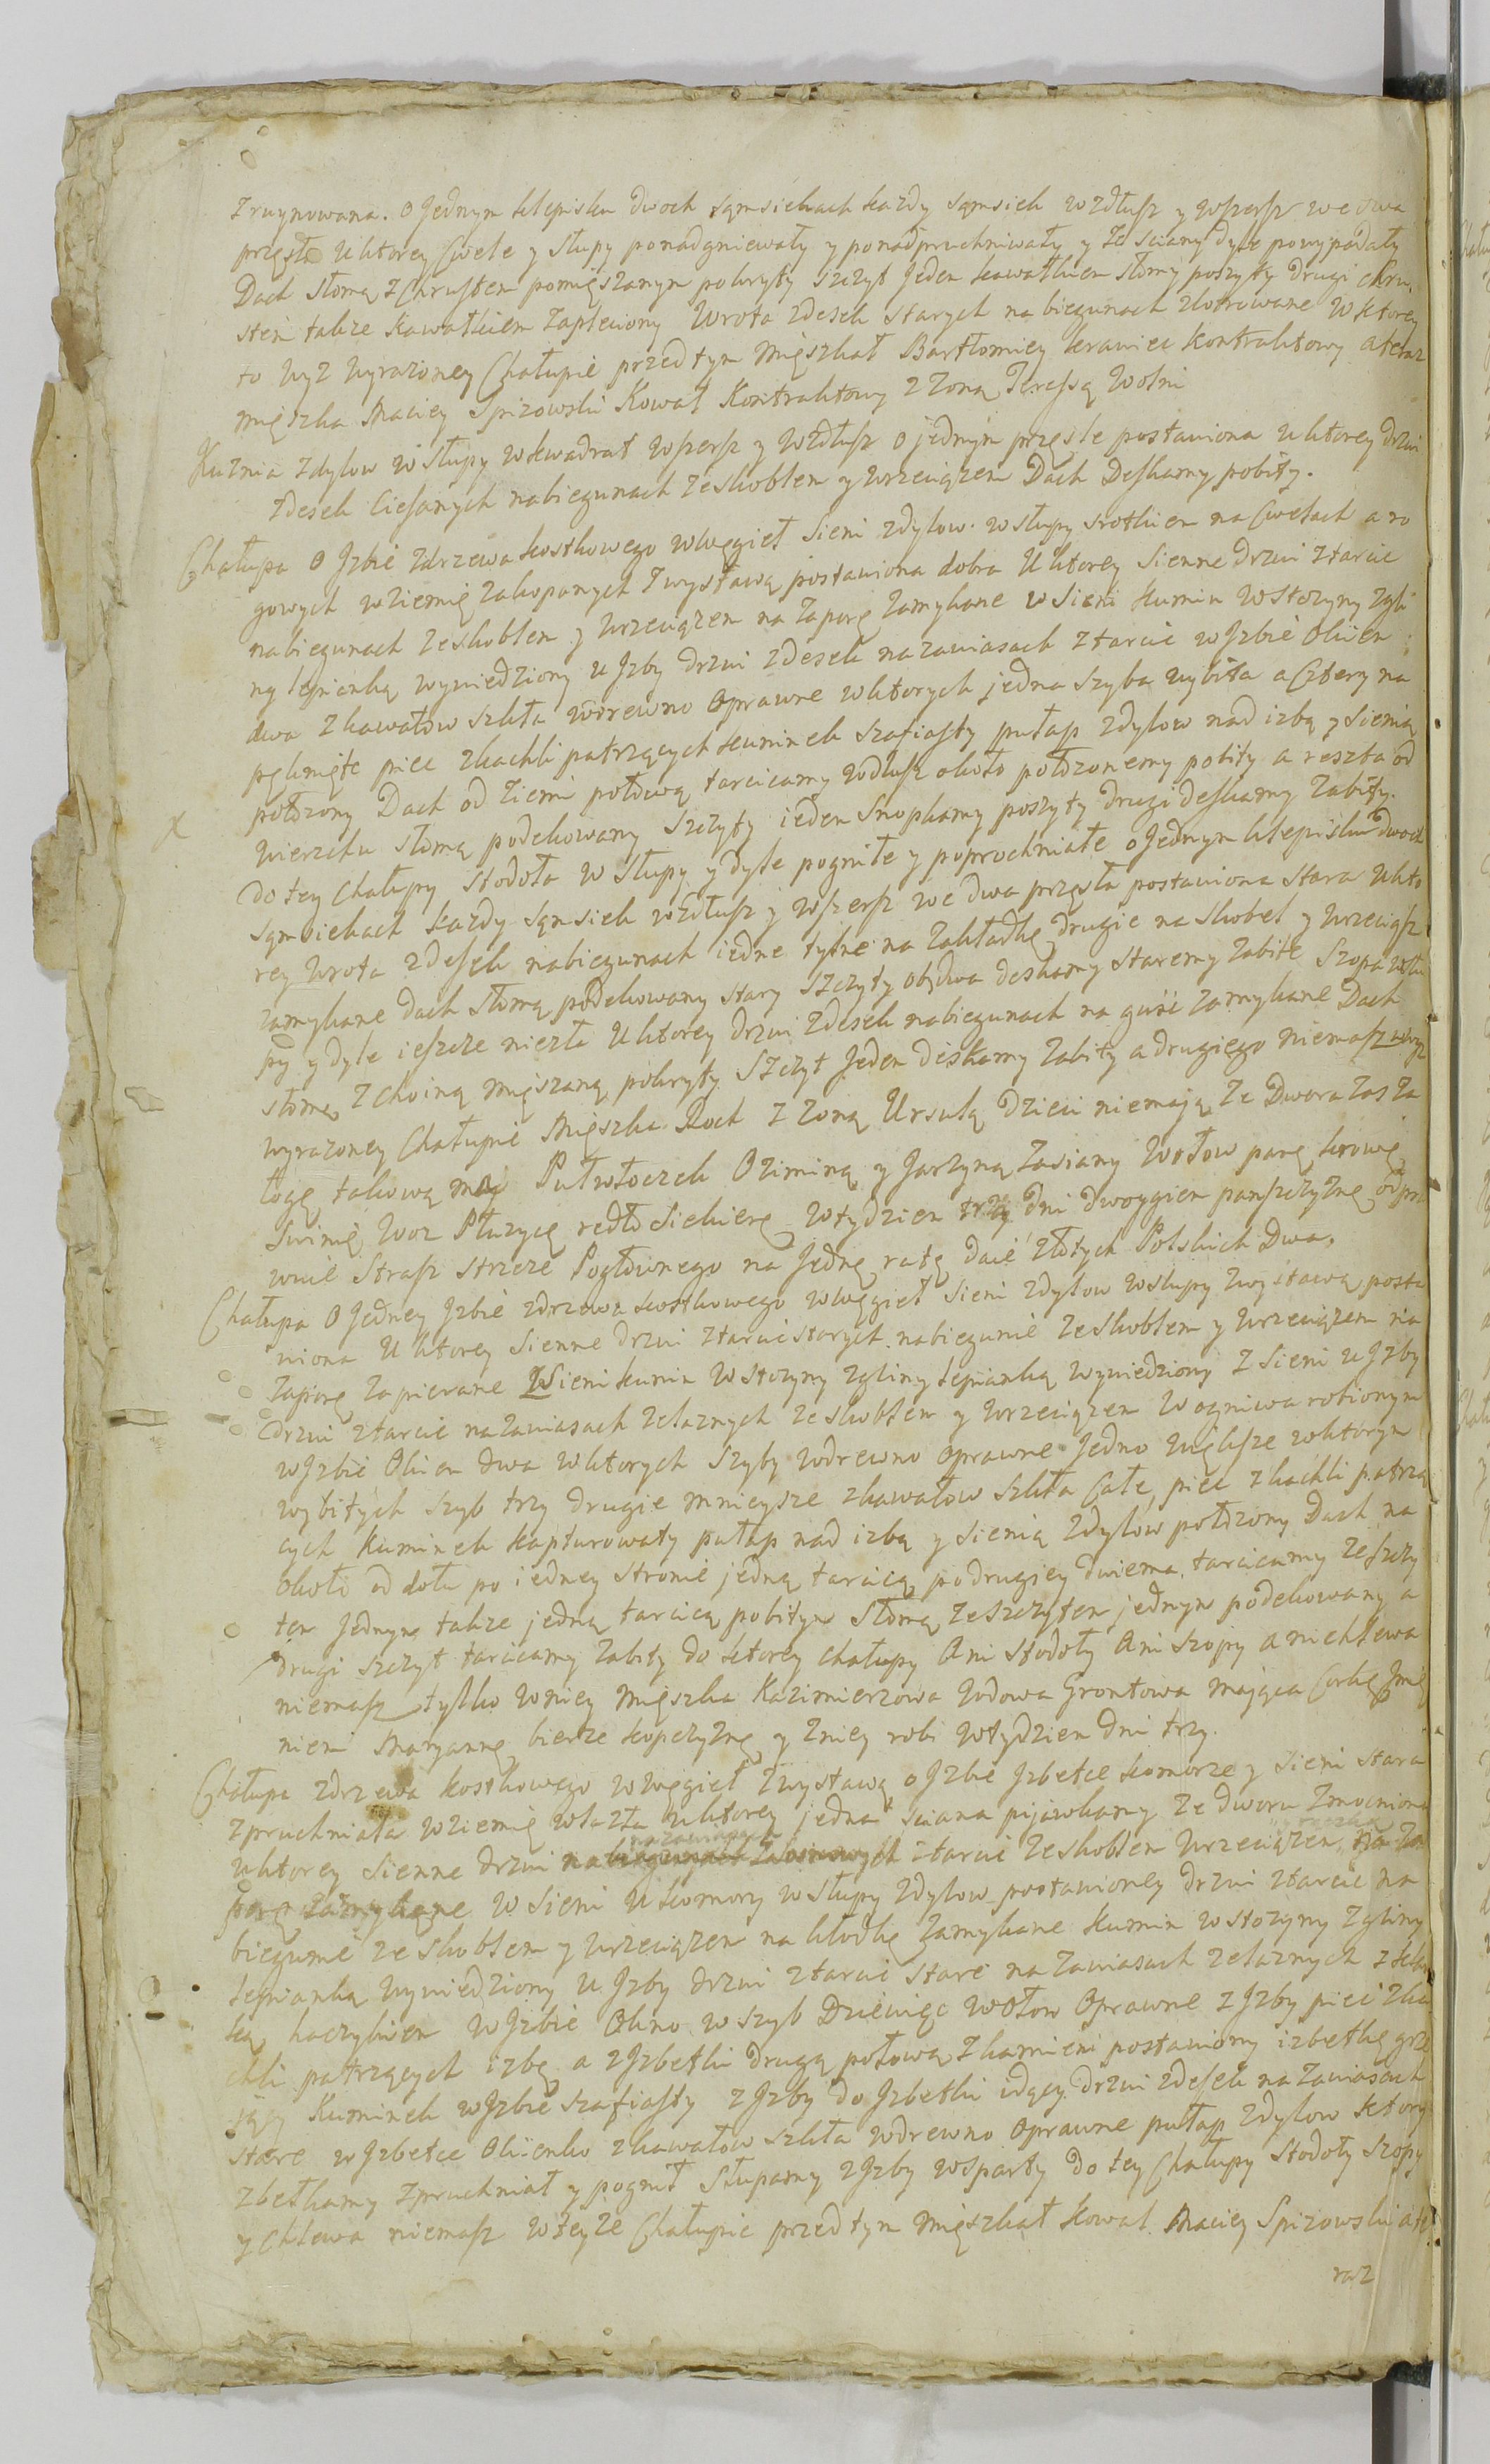 zruynowana. o Jednym klepisku dwoch sąmsiekach kazdy sąmsiek wzdłusz y wszersz we dwa
przęsła u ktorey Cwele y Słupy ponadgniewały y ponadpruchniwały y ze sciany dyle powypadały
Dach słomą z Chrustem pomięszanym pokryty szczyt Jeden kawałkiem słomy poszyty drugi chru„
stem takze kawałkiem zapleciony Wrota z desek starych na biegunach zbotrowane w ktorey
to wyz wyrazoney Chałupie przed tym mięszkał Bartłomiey krawiec kontraktowy a teraz
mięszka Maciey Spizowski Kowal Kontraktowy z Zoną Teressą wolni
Kuznia z dylow w słupy w kwadrat wszersz y wzdłusz o jednym przęsle postawiona u ktorey drzwi
z desek Ciesanych na biegunach ze skoblem y wrzeciązem Dach Deskamy pobity.
Chałupa o Jzbie z drzewa kostkowego w węgieł Sieni z dylow w słupy srotkiem na Cwelach a ro
gowych w ziemię zakopanych z wystawą postawiona dobra U ktorey Sienne drzwi z tarcic
na biegunach ze skoblem y wrzeciązem na zaporę zamykane w Sieni kumin w stozyny z gli
ny lepianką wywiedziony u Jzby drzwi z desek na zawiasach z tarcic w Jzbie Okien
dwa z kawałow szkła w drewno oprawne w ktorych jedna szyba wybita a Cztery na
pęknięte piec z kachli patrzących kuminek szafiasty pułap z dylow nad izbą y sienią
połozony Dach od ziemi połową tarcicamy wdłusz około połozonemy pobity a reszta od
wierzchu słomą podekowany Szczyty ieden Snopkamy poszyty drugi deskamy zabity.
do tey Chałupy stodoła w słupy y dyle pogniłe y poprochniałe o Jednym klepisku dwoch
sąmsiekach kazdy sąmsiek wzdłusz y wszersz we dwa przęsła postawiona stara u kto
rey wrota z desek na biegunach iedne tylne na zakładkę drugie na skobel y wrzeciąsz
zamykane dach słomą podekowany stary Szczyty obydwa deskamy staremy zabite Szopa w słu
py y dyle ieszcze niezła U ktorey drzwi z desek na biegunach na guść zamykane Dach
słomą z choiną mięszaną pokryty Szczyt Jeden deskamy zabity a drugiego niemasz w wyz
wyrazoney Chałupie Mięszka Roch z Zoną Ursulą dzieci niemają, ze Dwora zas za
łogę takową mają Pułwłoczek Oziminą y Jarzyną zasiany wołow parę krowę
swinię woz Płuzycę redło siekierę w tydzien trzy dni dwoygiem panszczyznę odpra
wuie Strasz strzeze Pogłownego na Jednę ratę daie złotych Polskich Dwa,
Chałupa o Jedney Jzbie z drzewa kostkowego w węgieł Sieni z dylow w słupy z wystawą posta
wiona U ktorey Sienne drzwi z tarcic starych na biegunie ze skoblem y wrzeciązem na
zaporę zapierane W Sieni kumin w stozyny z gliny lepianką wywiedziony z Sieni u Jzby
drzwi z tarcic na zawiasach zelaznych ze skoblem y wrzeciązem w ogniwa robionym
w Jzbie Okien dwa w ktorych szyby w drewno oprawne Jedno większe w ktorym
wybitych szyb trzy drugie mnieysze z kawałow szkła Całe, piec z kachli patrzą
cych Kuminek kapturowaty pułap nad izbą y sienią z dylow połozony Dach na
około od dołu po iedney stronie jedną tarcicą, po drugiey dwiema tarcicamy ze szczy
tem Jednym takze jedną tarcicą pobitym Słomą ze szczytem jednym podekowany a
drugi szczyt tarcicamy zabity do ktorey chałupy Ani stodoły Ani szopy ani chlewa
niemasz tylko w niey mięszka Kazimierzowa wdowa Grontowa mająca Corkę Jmię
niem Maryannę bierze kopczyznę y z niey robi w tydzien dni trzy.
Chałupa z drzewa kostkowego w węgieł z wystawą o Jzbie Jzbetce komorze y sieni stara
zpruchniała w ziemię wlazła u ktorey jedna sciana pijawkamy ze dworu zmocniona
u ktorey sienne drzwi na zawiasach z tarcic ze skoblem wrzeciązem, na za
porę zamykane w Sieni u komory w słupy z dylow postawioney drzwi z tarcic na
biegunie ze skoblem y wrzeciązem na kłodkę zamykane kumin w stozyny z gliny
lepianką wywiedziony u Jzby drzwi z tarcic stare na zawiasach zelaznych z klam
ką haczykiem w Jzbie Okno w szyb Dziewięc w ołow oprawne z Jzby piec z ka
chli patrzących izbę, a z Jzbetki drugą połową z kamieni postawiony izbetkę grze
jący Kuminek w Jzbie szafiasty z Jzby do Jzbetki idący drzwi z desek na zawiasach
stare w Jzbetce Okienko z kawałow szkła w drewno oprawne pułap z dylow ktory
z belkamy zpruchniał y pognił Słupamy z Jzby wsparty do tey Chałupy stodoły szopy
y chlewa niemasz w teyze Chałupie przed tym mięszkał kowal Maciey Spizowski a te
raz